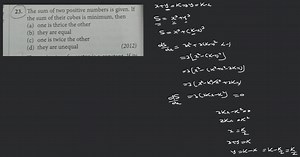 23. The sum of two positive numbers is given. If
the sum of their cubes is minimum, then
(a) one is thrice the other
(b) they are equal
(c) one is twice the other
(d) they are unequal (2012)
x+y=K ⇒ y=K-x
S = x³+y³
S = x³+(K-x)³
=3[x²-(K-x)²]
2Kx-K²=0
2Kx=K²
x=K/2
x+y=K
y=K-x = K-K/2 = K/2